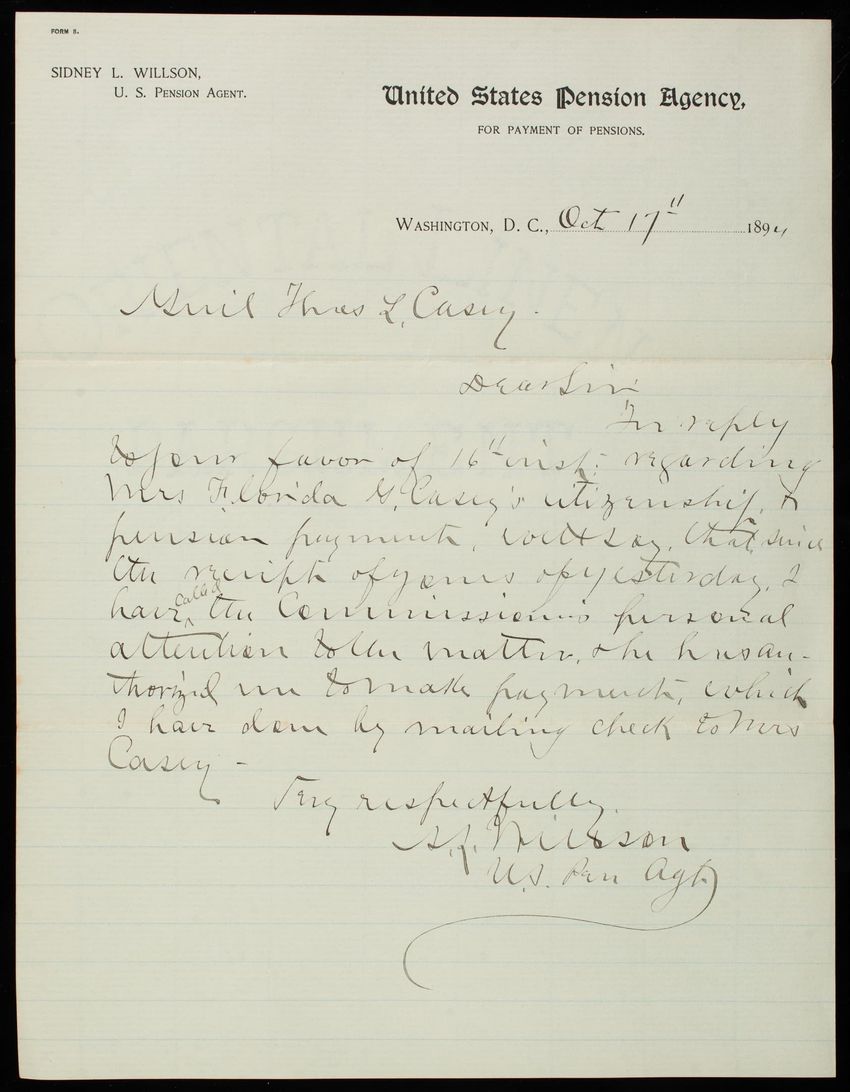 FORM 8.
SIDNEY L. WILLSON,
U. S. PENSION AGENT.
United States Pension Agency,
FOR PAYMENT OF PENSIONS.
WASHINGTON, D. C., Oct 17" 1894
Genl Thos L. Casey.
Dear Sir
In reply
to your favor of 16" inst. regarding
Mrs Florida G. Casey's citizenship, &
pension payment, will say, that since
the receipt of yours of yesterday, I
have called the Commissioner's personal
attention to the matter, & he has au-
thorized me to make payment, which
I have done by mailing check to Mrs
Casey -
Very respectfully,
S. L. Willson
U.S. Pen Agt